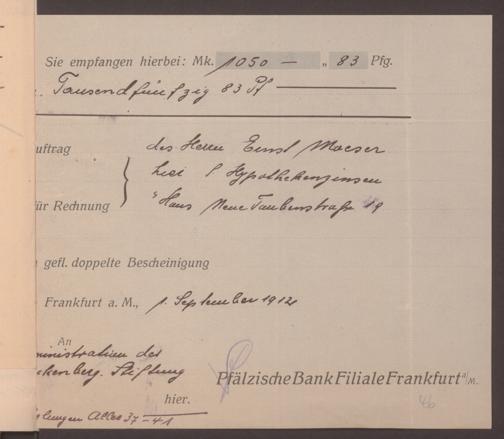 Sie empfangen hierbei: Mk. 1050 — „ 83 Pfg.
Tausendfünfzig 83 Pf
uftrag des Herrn Ernst Moeser
hier / Hypothekenzinsen
ür Rechnung " Haus Neue Taubenstraße 19
gefl. doppelte Bescheinigung
Frankfurt a. M., 1. September 1912
An
ministration der
ckenberg. Stiftung
Pfälzische Bank Filiale Frankfurt a/M.
hier.
46